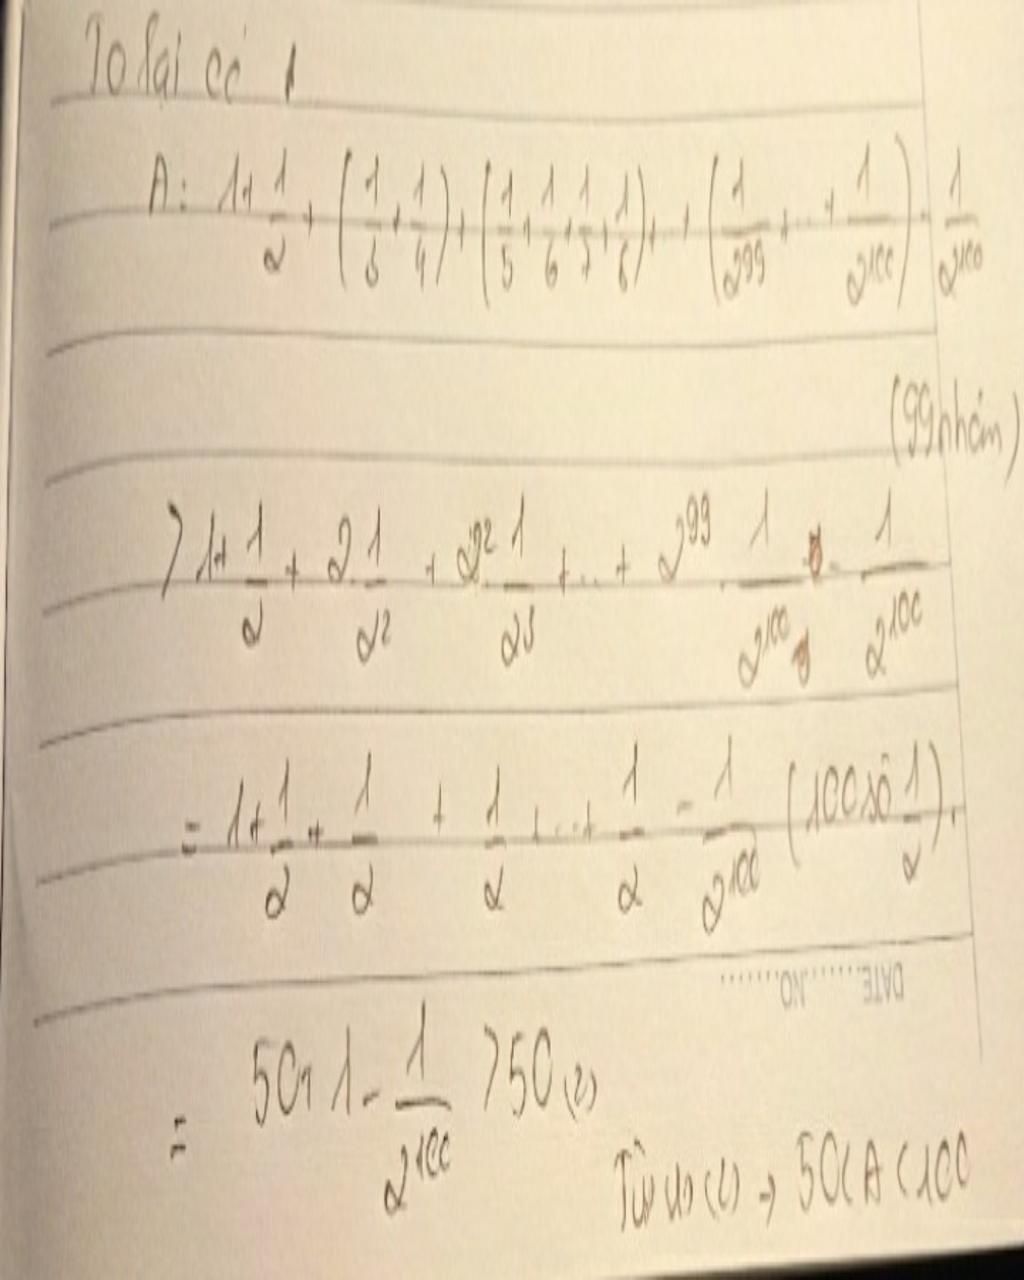 Ta lại có 1
A = 1 + 1/2 + (1/3 + 1/4) + (1/5 + 1/6 + 1/7 + 1/8) + .. + (1/2^99 + .. + 1/2^100) - 1/2^100
(99 nhóm)
> 1 + 1/2 + 2 . 1/2^2 + 2^2 . 1/2^3 + .. + 2^99 . 1/2^100 - 1/2^100
= 1 + 1/2 + 1/2 + 1/2 + .. + 1/2 - 1/2^100 (100 số 1/2).
DATE........NO........
= 50 + 1 - 1/2^100 > 50 (2)
Từ (1) (2) → 50 < A < 100